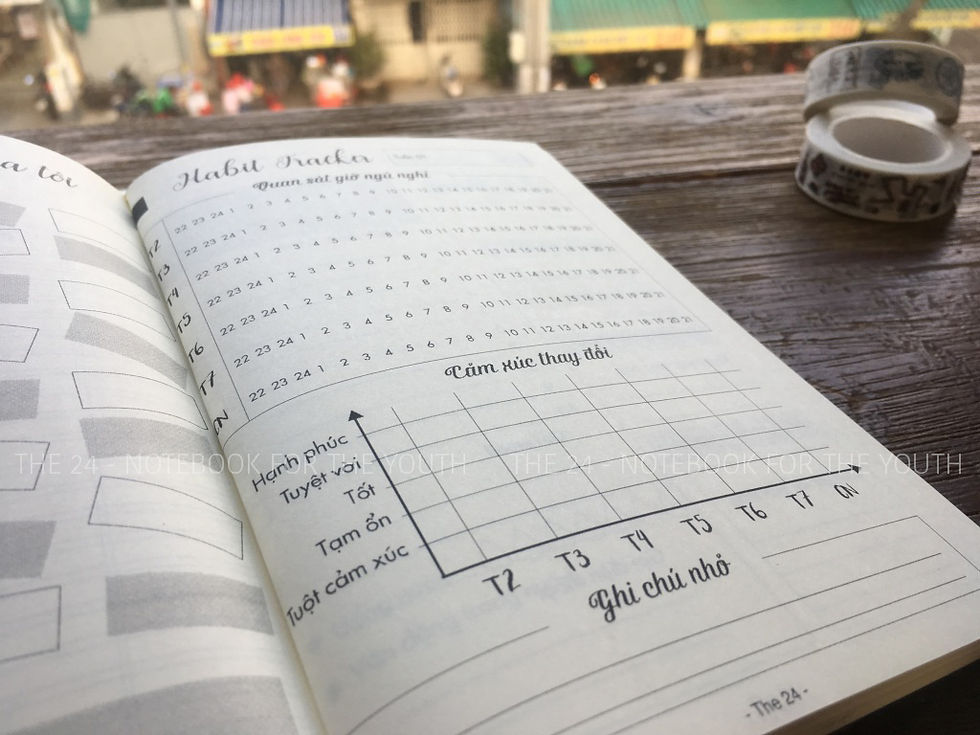 a tôi
Habit Tracker
Quan sát giờ ngủ nghỉ
T2 22 23 24 1 2 3 4 5 6 7 8 9 10 11 12 13 14 15 16 17 18 19 20 21
T3 22 23 24 1 2 3 4 5 6 7 8 9 10 11 12 13 14 15 16 17 18 19 20 21
T4 22 23 24 1 2 3 4 5 6 7 8 9 10 11 12 13 14 15 16 17 18 19 20 21
T5 22 23 24 1 2 3 4 5 6 7 8 9 10 11 12 13 14 15 16 17 18 19 20 21
T6 22 23 24 1 2 3 4 5 6 7 8 9 10 11 12 13 14 15 16 17 18 19 20 21
T7 22 23 24 1 2 3 4 5 6 7 8 9 10 11 12 13 14 15 16 17 18 19 20 21
CN 22 23 24 1 2 3 4 5 6 7 8 9 10 11 12 13 14 15 16 17 18 19 20 21
Cảm xúc thay đổi
Hạnh phúc
Tuyệt vời
Tốt
Tạm ổn
Tuột cảm xúc
T2 T3 T4 T5 T6 T7 CN
Ghi chú nhỏ
- The 24 -
THE 24 - NOTEBOOK FOR THE YOUTH THE 24 - NOTEBOOK FOR THE YOUTH